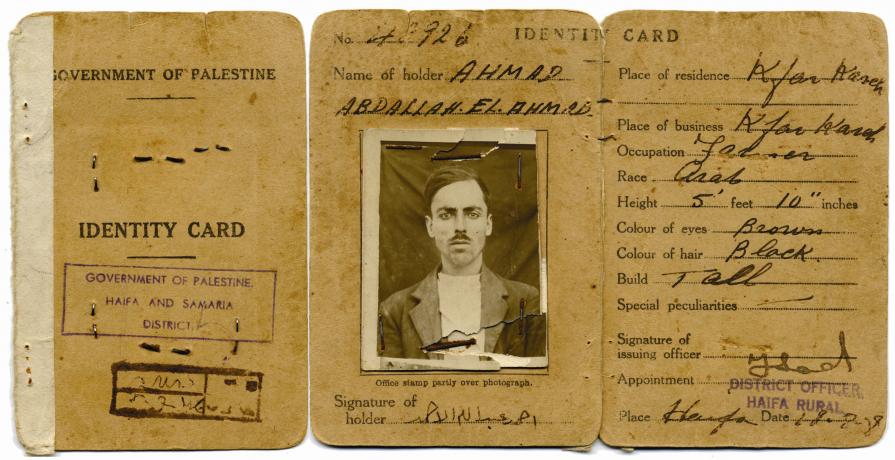 GOVERNMENT OF PALESTINE
IDENTITY CARD
GOVERNMENT OF PALESTINE.
HAIFA AND SAMARIA
DISTRICT.
IDENTITY CARD
No.
Name of holder AHMAD
ABDALLAH. EL. AHMAD.
Office stamp partly over photograph.
Signature of
holder
Place of residence Kfar
Place of business Kfar
Occupation Farmer
Race Arab
Height 5' feet 10" inches
Colour of eyes Brown
Colour of hair Black.
Build Tall
Special peculiarities
Signature of
issuing officer
Appointment DISTRICT OFFICER,
HAIFA RURAL
Place Haifa Date